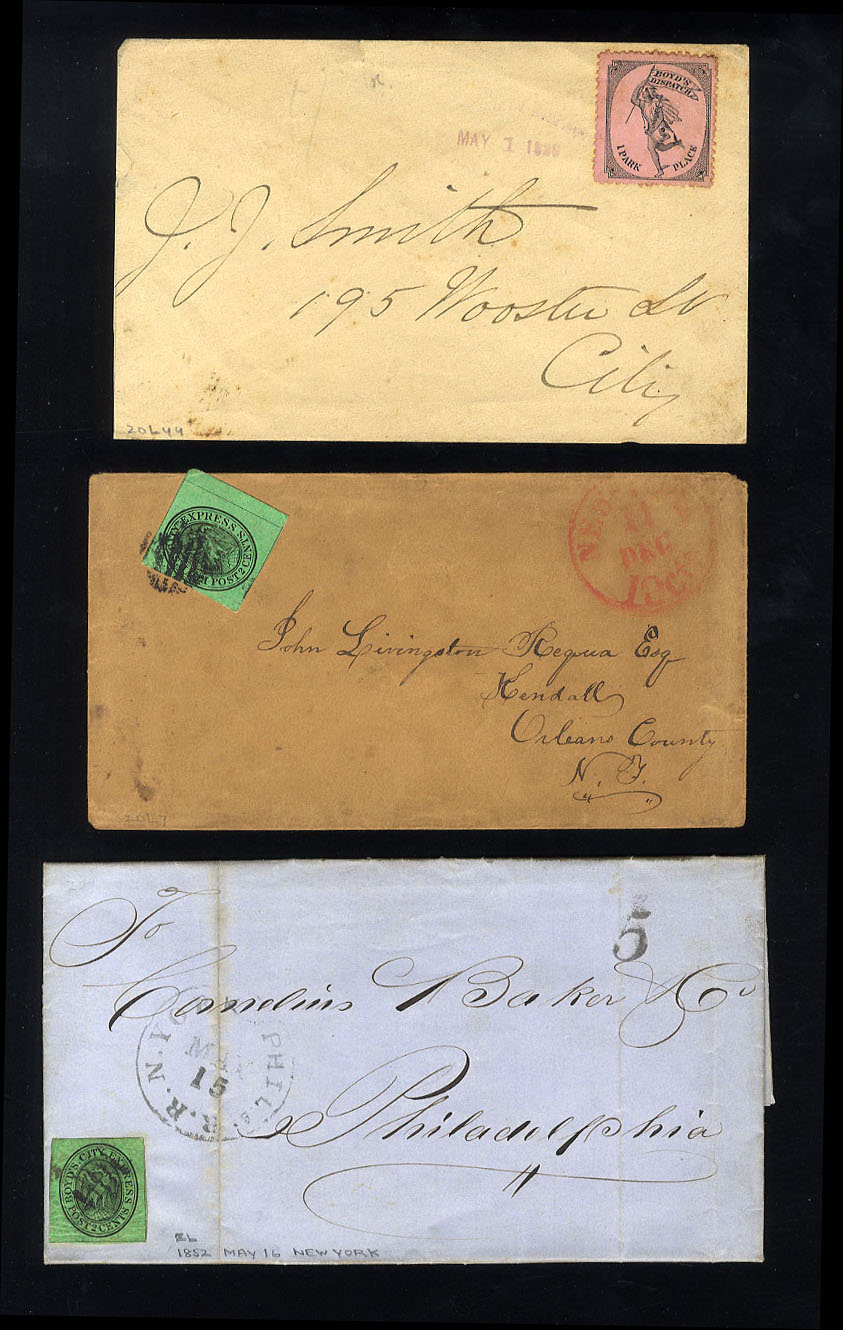 BOYD'S
DISPATCH
1 PARK PLACE
MAY 1
J. J. Smith
195 Wooster St
City
20L44
EXPRESS
POST 2 CENTS
NEW
DEC
10cts
John Livingston Requa Esq
Kendall
Orleans County
N. Y.
20L7
5
To
Cornelius Baker & Co
R.R. N. YO PHILA
MAY
15
Philadelphia
BOYD'S CITY EXPRESS
POST 2 CENTS
EL
1852 MAY 16 NEW YORK